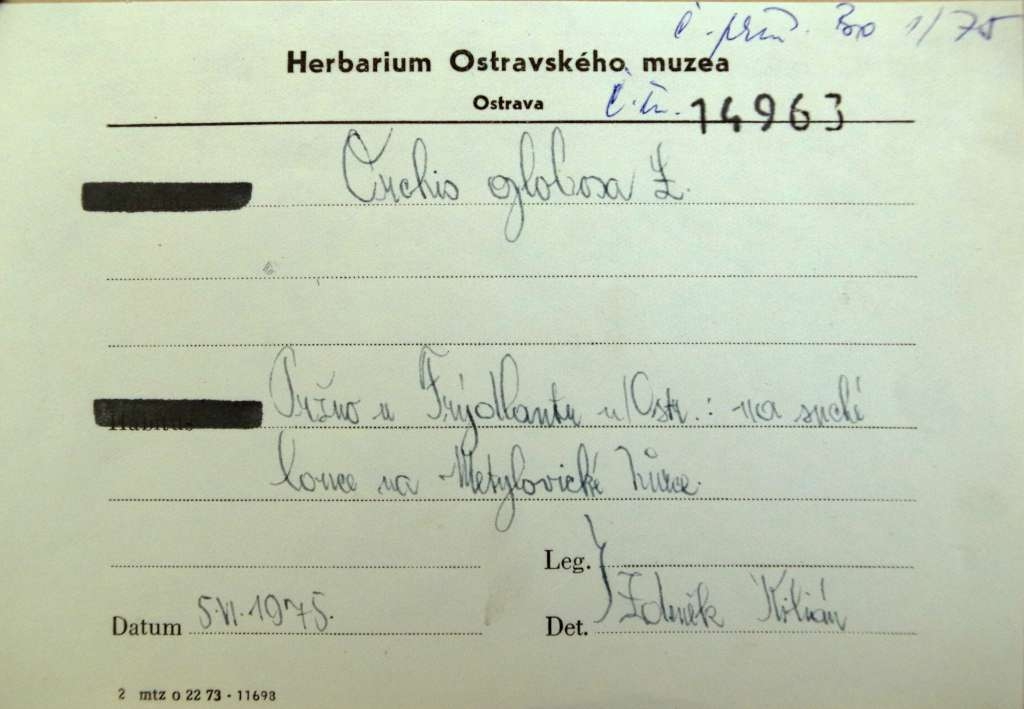 č. přír. Bo 1/75
Herbarium Ostravského muzea
Ostrava
č. 14963
Orchis globosa L.
Pržno u Frýdlantu n/Ostr.: na suché
louce na Metylovické hůrce.
Leg.
Datum 5.VI.1975.
Det. Zdeněk Kilián
2 mtz o 22 73 - 11698